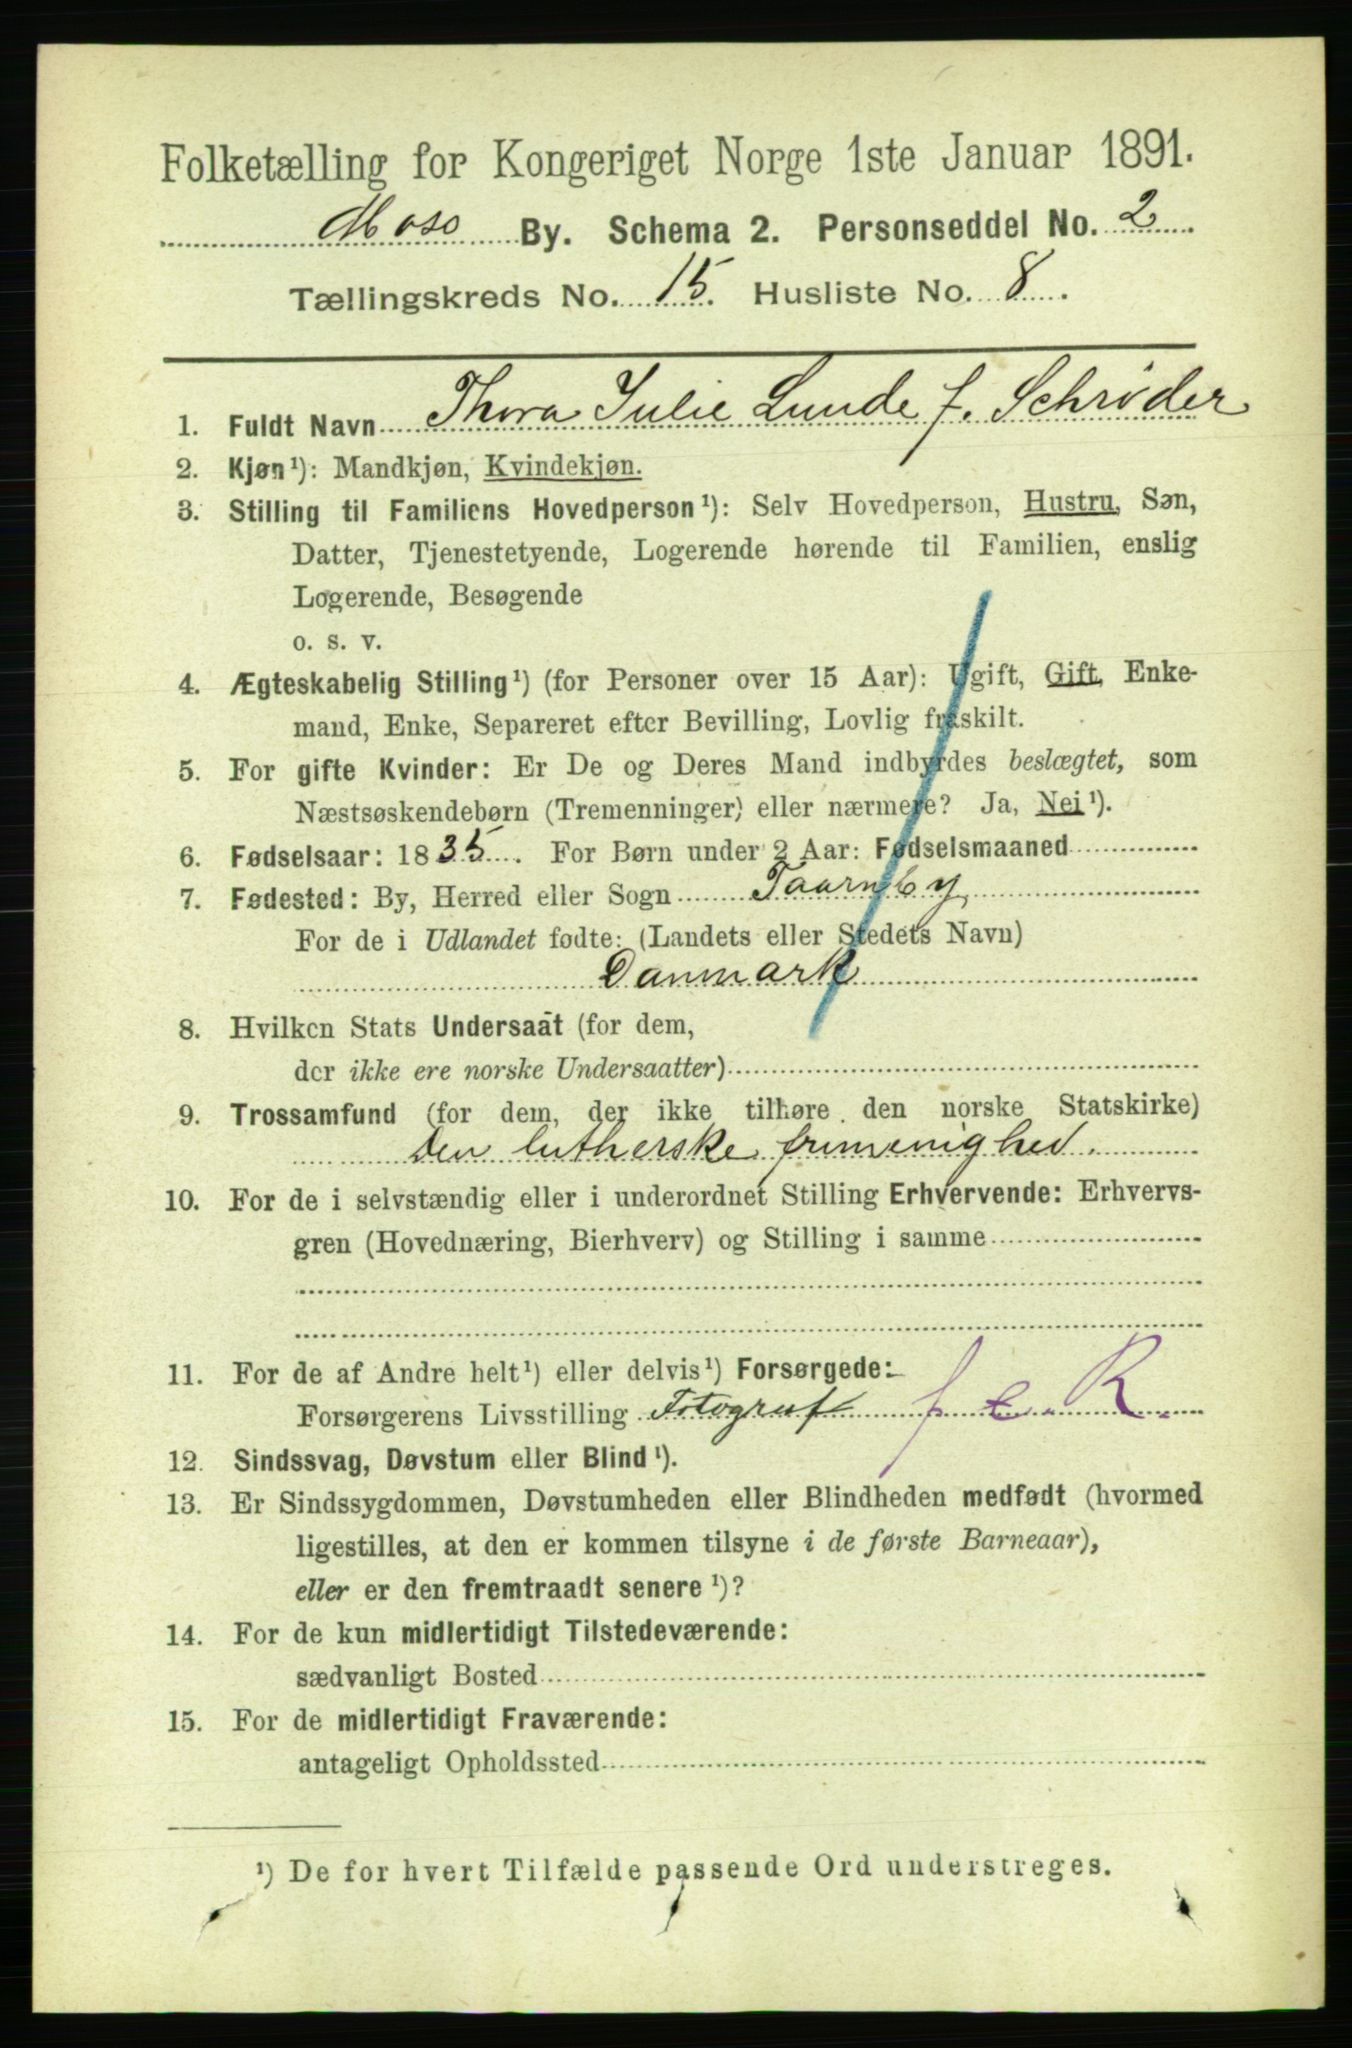 Folketælling for Kongeriget Norge 1ste Januar 1891.
Moss By. Schema 2. Personseddel No. 2
Tællingskreds No. 15. Husliste No. 8.
1. Fuldt Navn Thora Julie Lunde f. Schrøder
2. Kjøn ¹): Mandkjøn, Kvindekjøn.
3. Stilling til Familiens Hovedperson ¹): Selv Hovedperson, Hustru, Søn,
Datter, Tjenestetyende, Logerende hørende til Familien, enslig
Logerende, Besøgende
o. s. v.
4. Ægteskabelig Stilling ¹) (for Personer over 15 Aar): Ugift, Gift, Enke-
mand, Enke, Separeret efter Bevilling, Lovlig fraskilt.
5. For gifte Kvinder: Er De og Deres Mand indbyrdes beslægtet, som
Næstsøskendebørn (Tremenninger) eller nærmere? Ja, Nei ¹).
6. Fødselsaar: 1835. For Børn under 2 Aar: Fødselsmaaned
7. Fødested: By, Herred eller Sogn Taarnby
For de i Udlandet fødte: (Landets eller Stedets Navn)
Danmark
8. Hvilken Stats Undersaat (for dem,
der ikke ere norske Undersaatter)
9. Trossamfund (for dem, der ikke tilhøre den norske Statskirke)
Den lutherske frimenighed.
10. For de i selvstændig eller i underordnet Stilling Erhvervende: Erhvervs-
gren (Hovednæring, Bierhverv) og Stilling i samme
11. For de af Andre helt ¹) eller delvis ¹) Forsørgede:
Forsørgerens Livsstilling Fotograf f. e. R.
12. Sindssvag, Døvstum eller Blind ¹).
13. Er Sindssygdommen, Døvstumheden eller Blindheden medfødt (hvormed
ligestilles, at den er kommen tilsyne i de første Barneaar),
eller er den fremtraadt senere ¹)?
14. For de kun midlertidigt Tilstedeværende:
sædvanligt Bosted
15. For de midlertidigt Fraværende:
antageligt Opholdssted
¹) De for hvert Tilfælde passende Ord understreges.